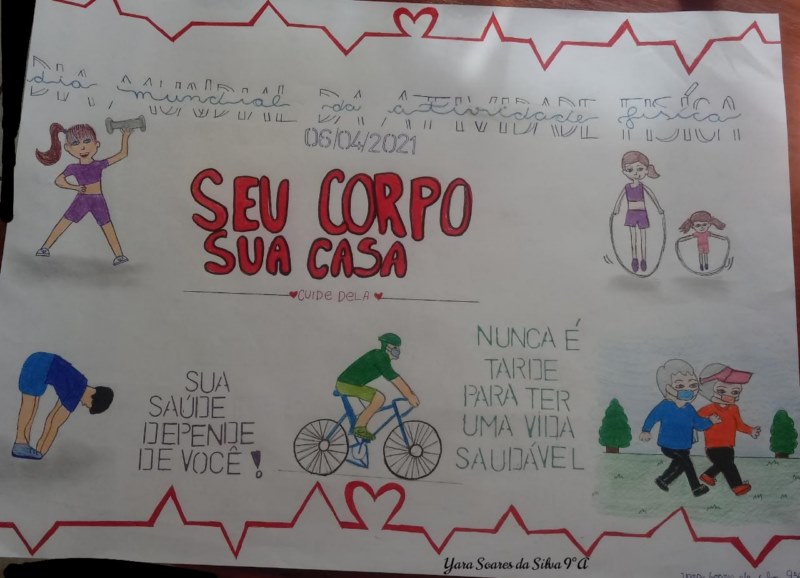 dia mundial da atividade física
06/04/2021
SEU CORPO
SUA CASA
CUIDe DeLA
SUA
SAÚDE
DEPENDE
DE VOCÊ!
NUNCA É
TARDE
PARA TER
UMA VIDA
SAUDÁVEL
Yara Soares da Silva 9°A